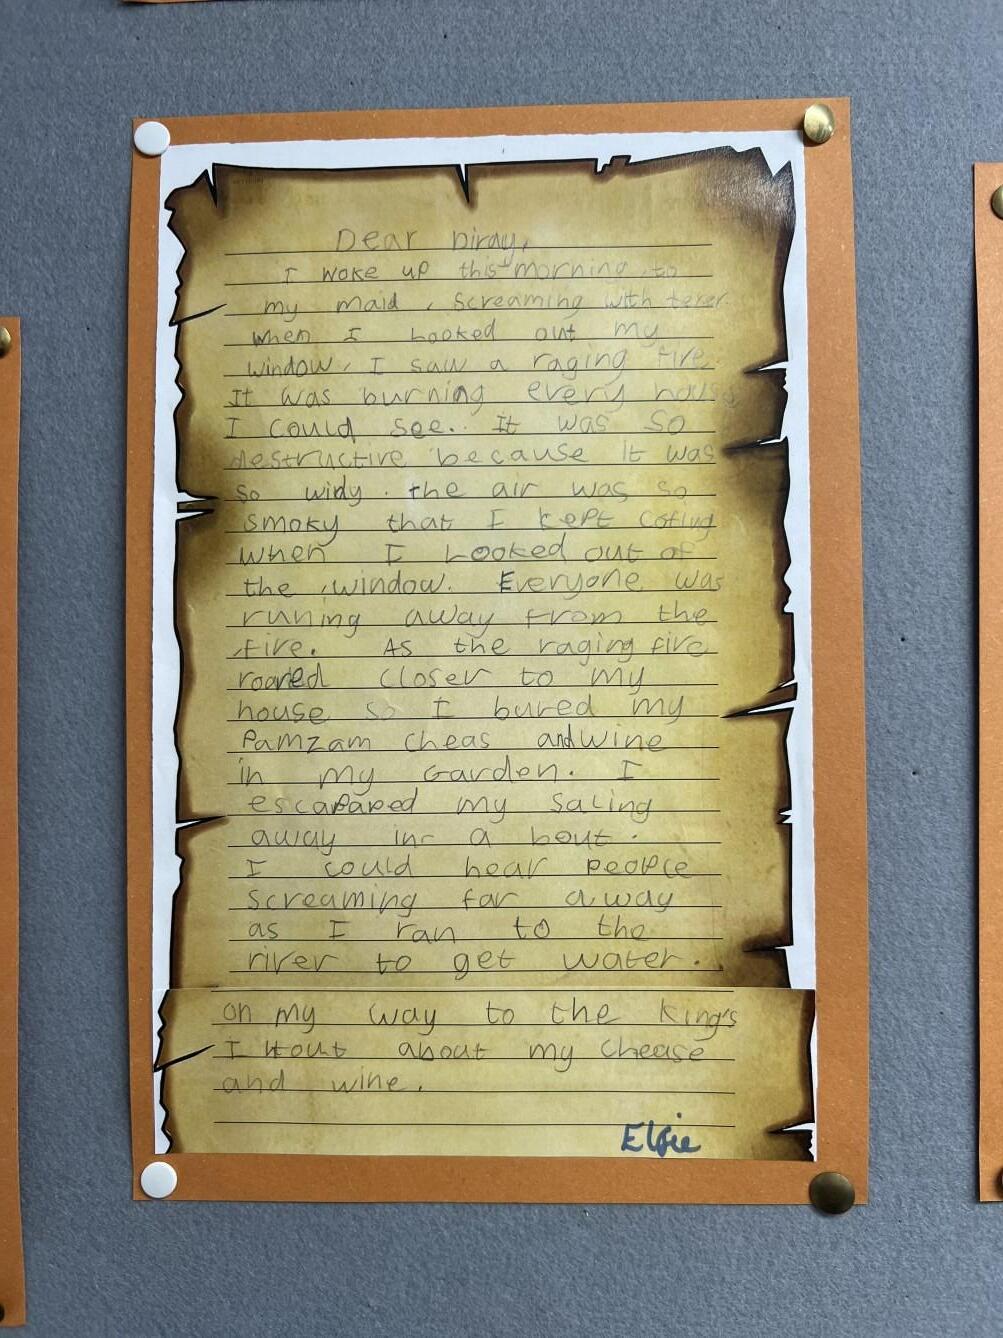 Dear diray,
I woke up this morning to
my maid, screaming with terer
when I Looked out my
window, I saw a raging fire.
It was burning every house
I could see. It was so
destructive because it was
so widy. the air was so
smoky that I kept cofing
when I Looked out of
the window. Everyone was
runing away from the
fire. As the raging fire
roared closer to my
house so I bured my
Pamzam cheas and wine
in my Garden. I
escapaped my saling
away in a bout.
I could hear people
screaming far away
as I ran to the
river to get water.
on my way to the king's
I thout about my chease
and wine.
Elfie